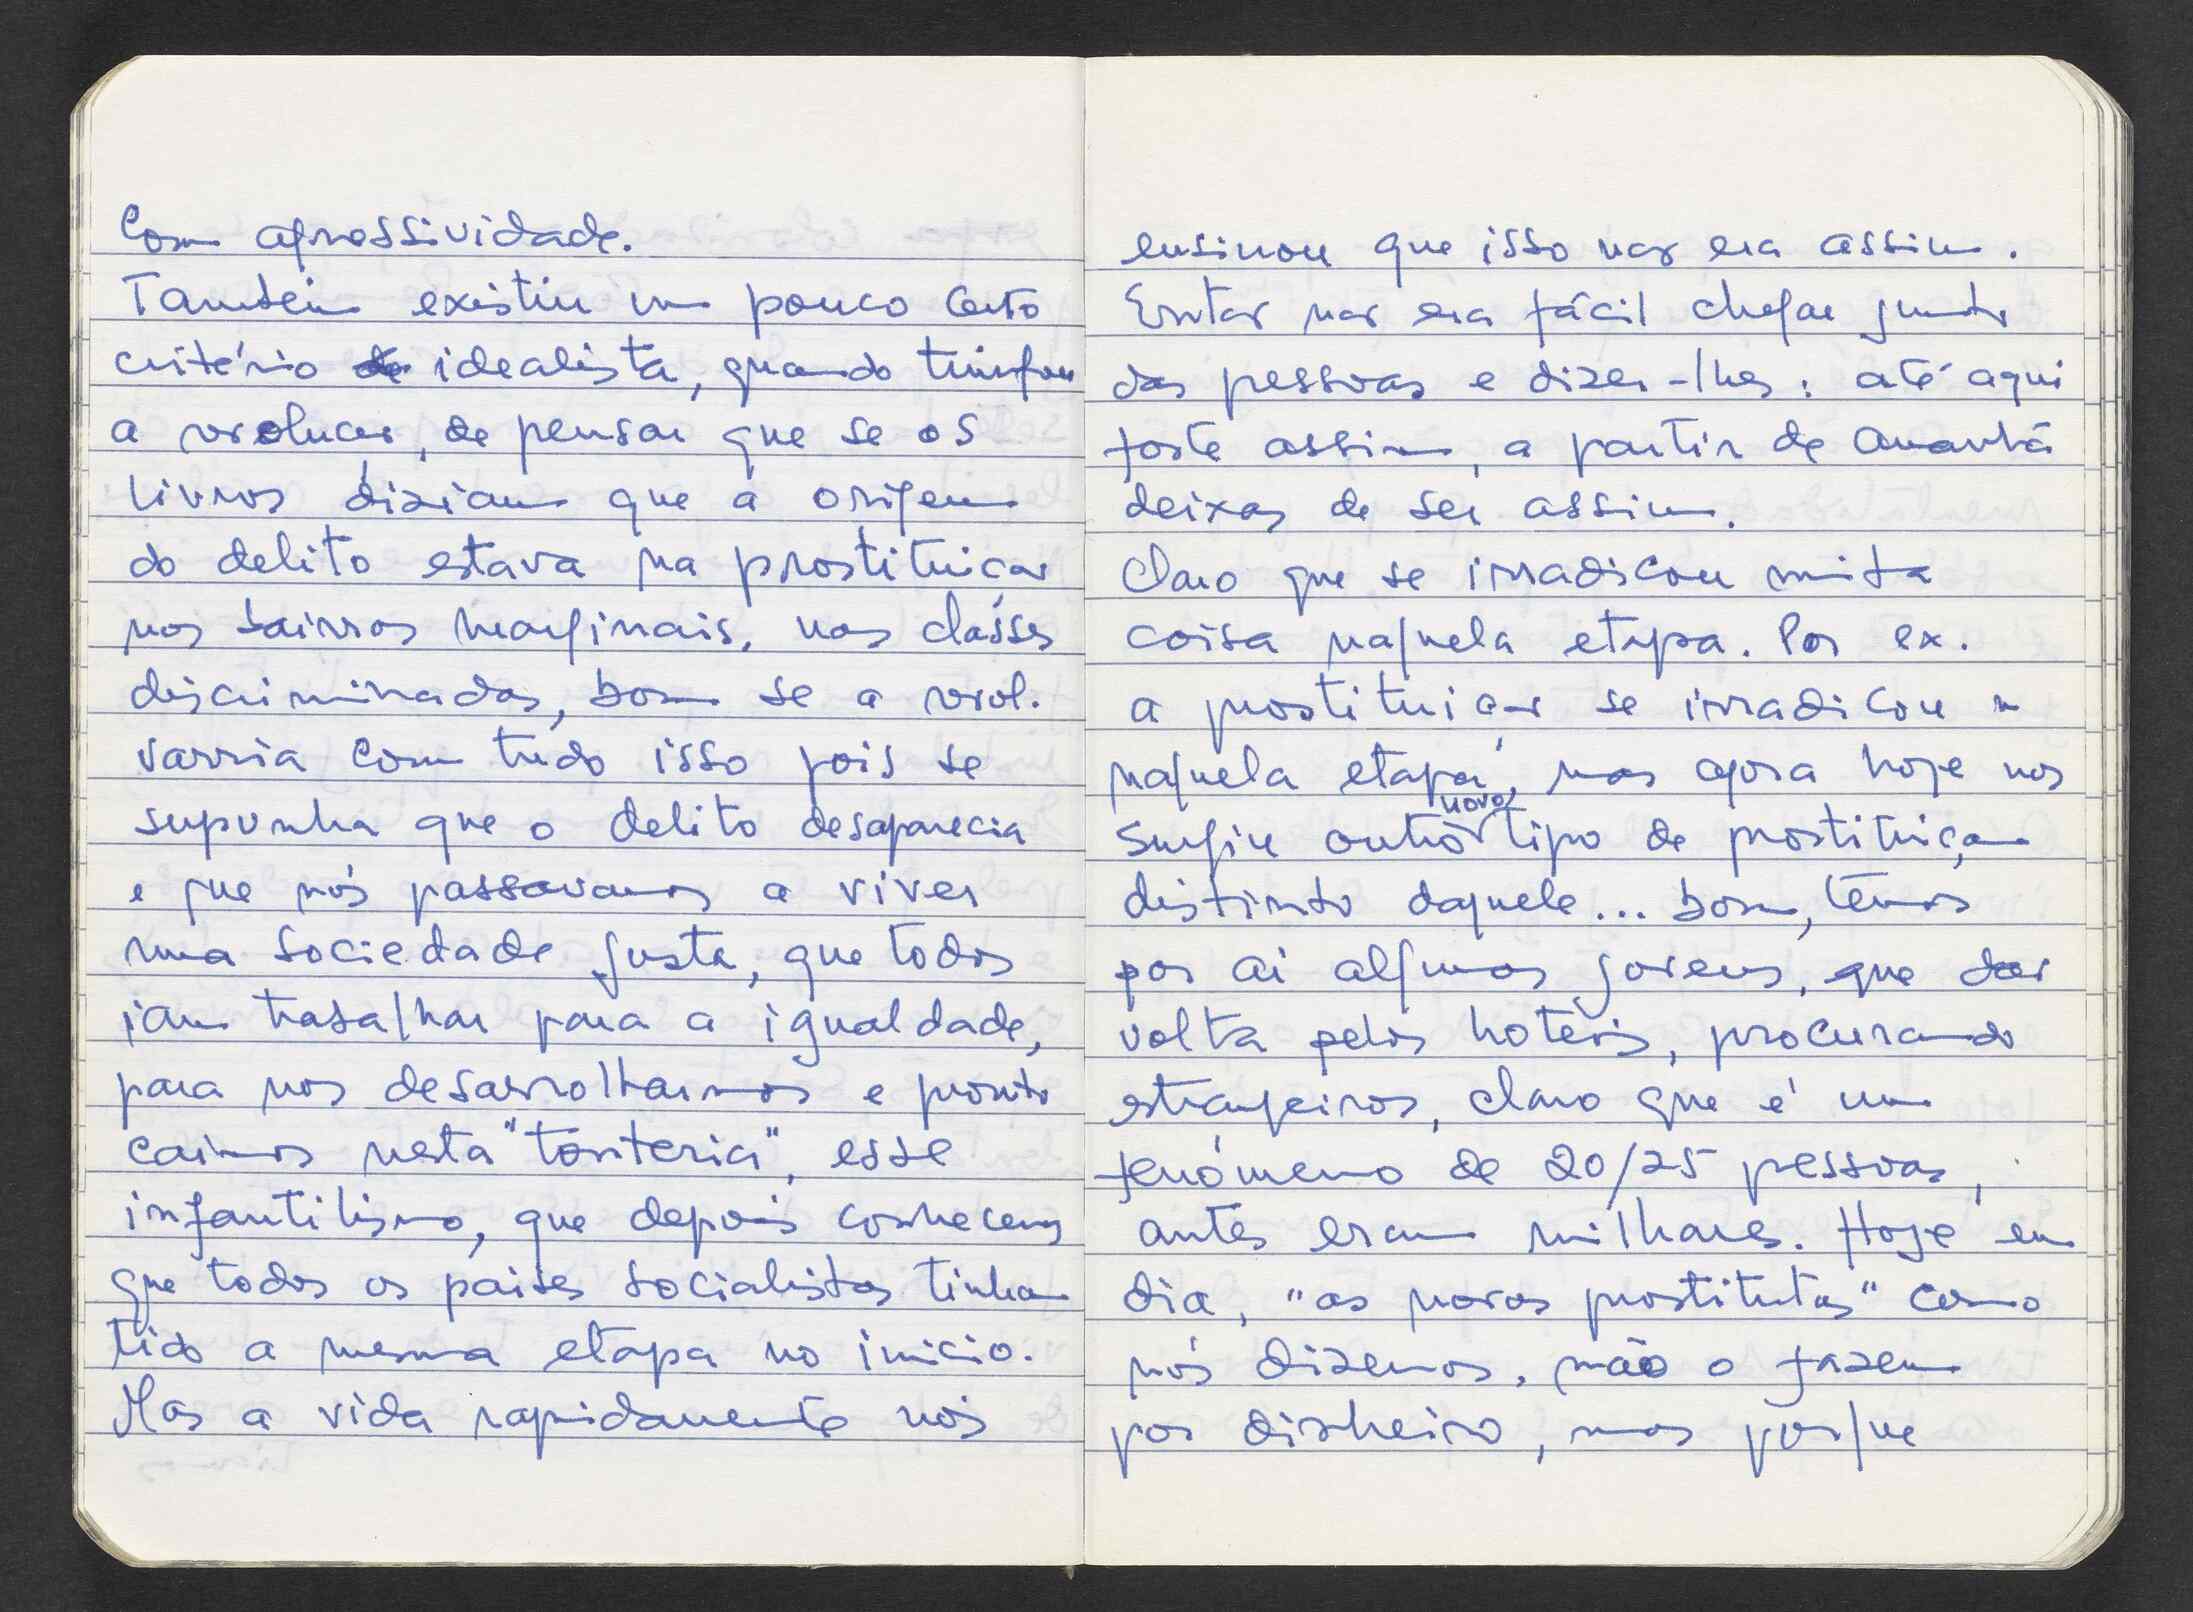 Com agressividade.
Também existiu um pouco certo
critério de idealista, quando triunfou
a revolução, de pensar que se os
livros diziam que a origem
do delito estava na prostituição
nos bairros marginais, nas classes
discriminadas, bom se a revol.
varria com tudo isso pois se
supunha que o delito desaparecia
e que nós passavamos a viver
numa sociedade justa, que todos
iam trabalhar para a igualdade,
para nos desarrolharmos e pronto
caimos nesta "tonteria", esse
infantilismo, que depois conhecemos
que todos os paises socialistas tinham
tido a mesma etapa no inicio.
Mas a vida rapidamente nos
ensinou que isso não era assim.
Então não era fácil chegar junto
das pessoas e dizer-lhes: até aqui
foste assim, a partir de amanhã
deixas de ser assim.
Claro que se irradicou muita
coisa naquela etapa. Por ex.
a prostituição se irradicou n
naquela etapa, mas agora hoje nos
surgiu outro novo tipo de prostituição
distinto daquele... bom, temos
por ai algumas jovens, que dão
volta pelos hotéis, procurando
estrangeiros, claro que é um
fenómeno de 20/25 pessoas,
antes eram milhares. Hoje em
dia, "as novas prostitutas" como
nós dizemos, não o fazem
por dinheiro, mas porque